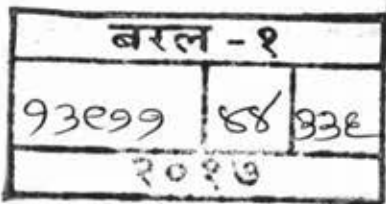 बरल - १
१३९११ ४४ ३३६
२०१७